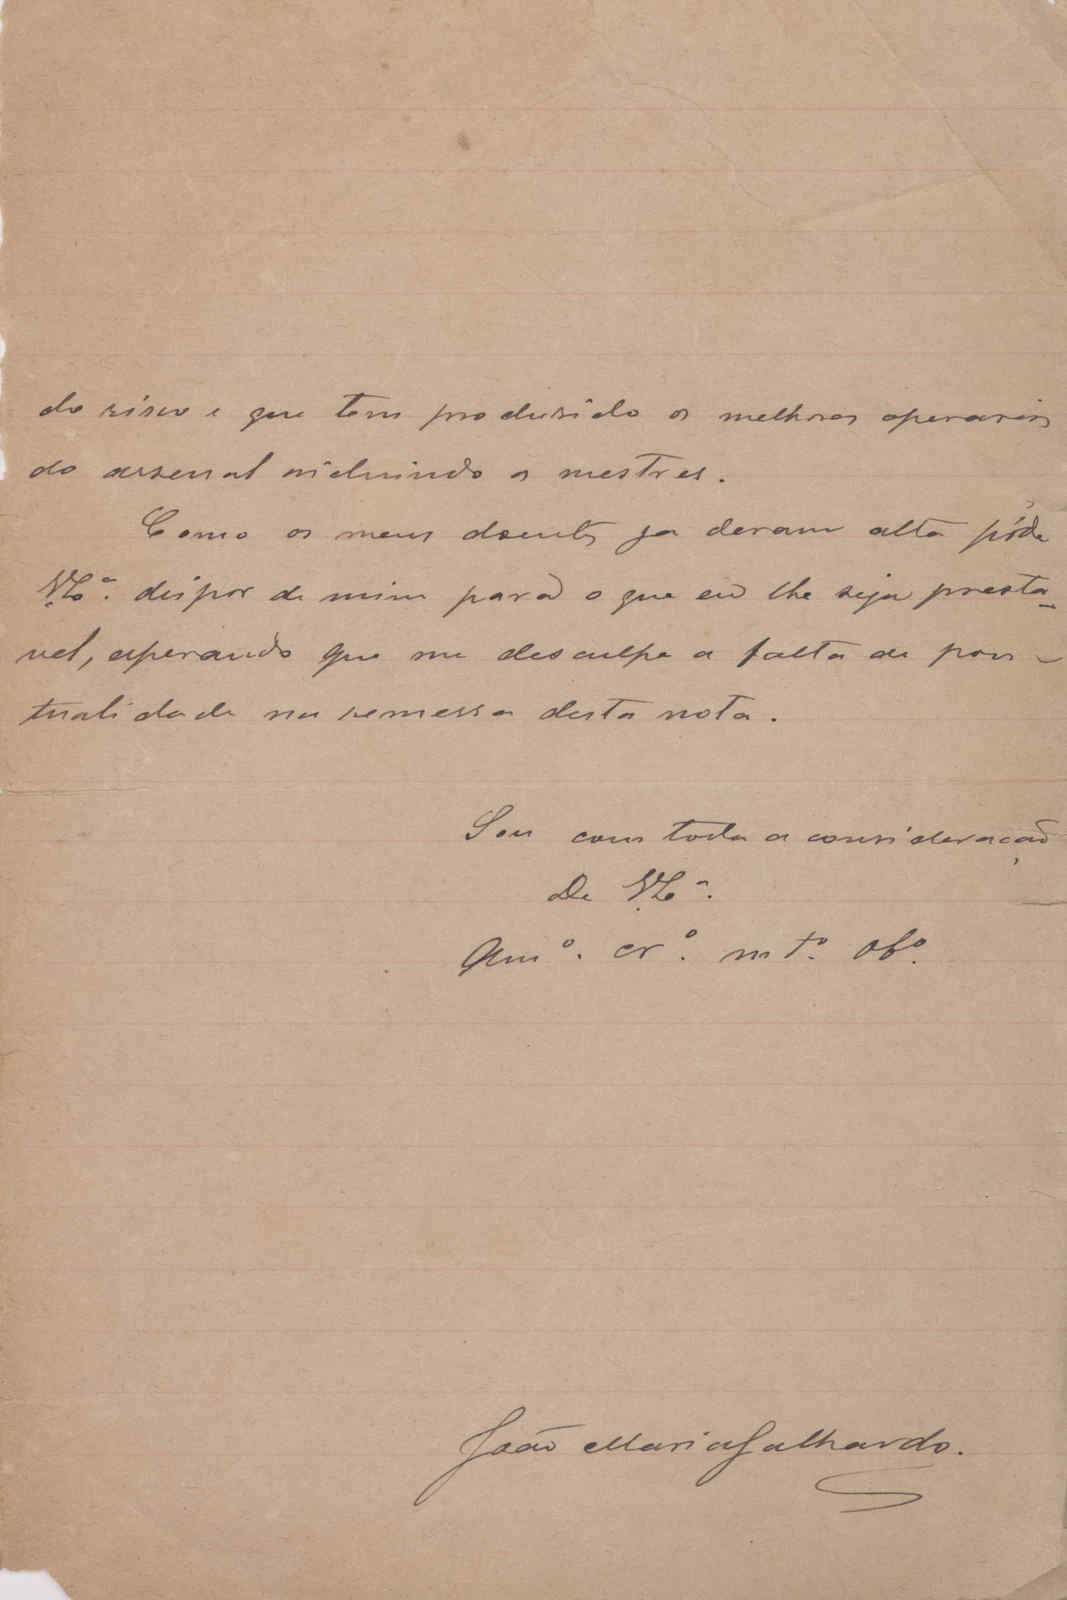 do risco e que tem produsido os melhores operarios
do arsenal incluindo os mestres.
Como os meus doentes ja deram alta póde
V. Ex.ª dispor de mim para o que eu lhe seja presta-
vel, esperando que me desculpe a falta de pon-
tualidade na remessa desta nota.
Sou com toda a consideração
De V. Ex.ª
Am.º cr.º mt.º Ob.º
João Maria Galhardo.